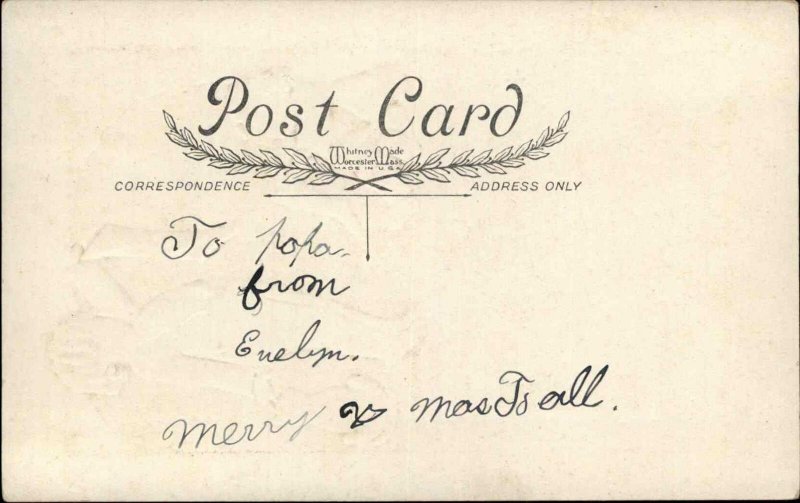 Post Card
Whitney Made
Worcester Mass.
MADE IN U.S.A.
CORRESPONDENCE
ADDRESS ONLY
To papa.
from
Evelyn.
Merry X masTo all.